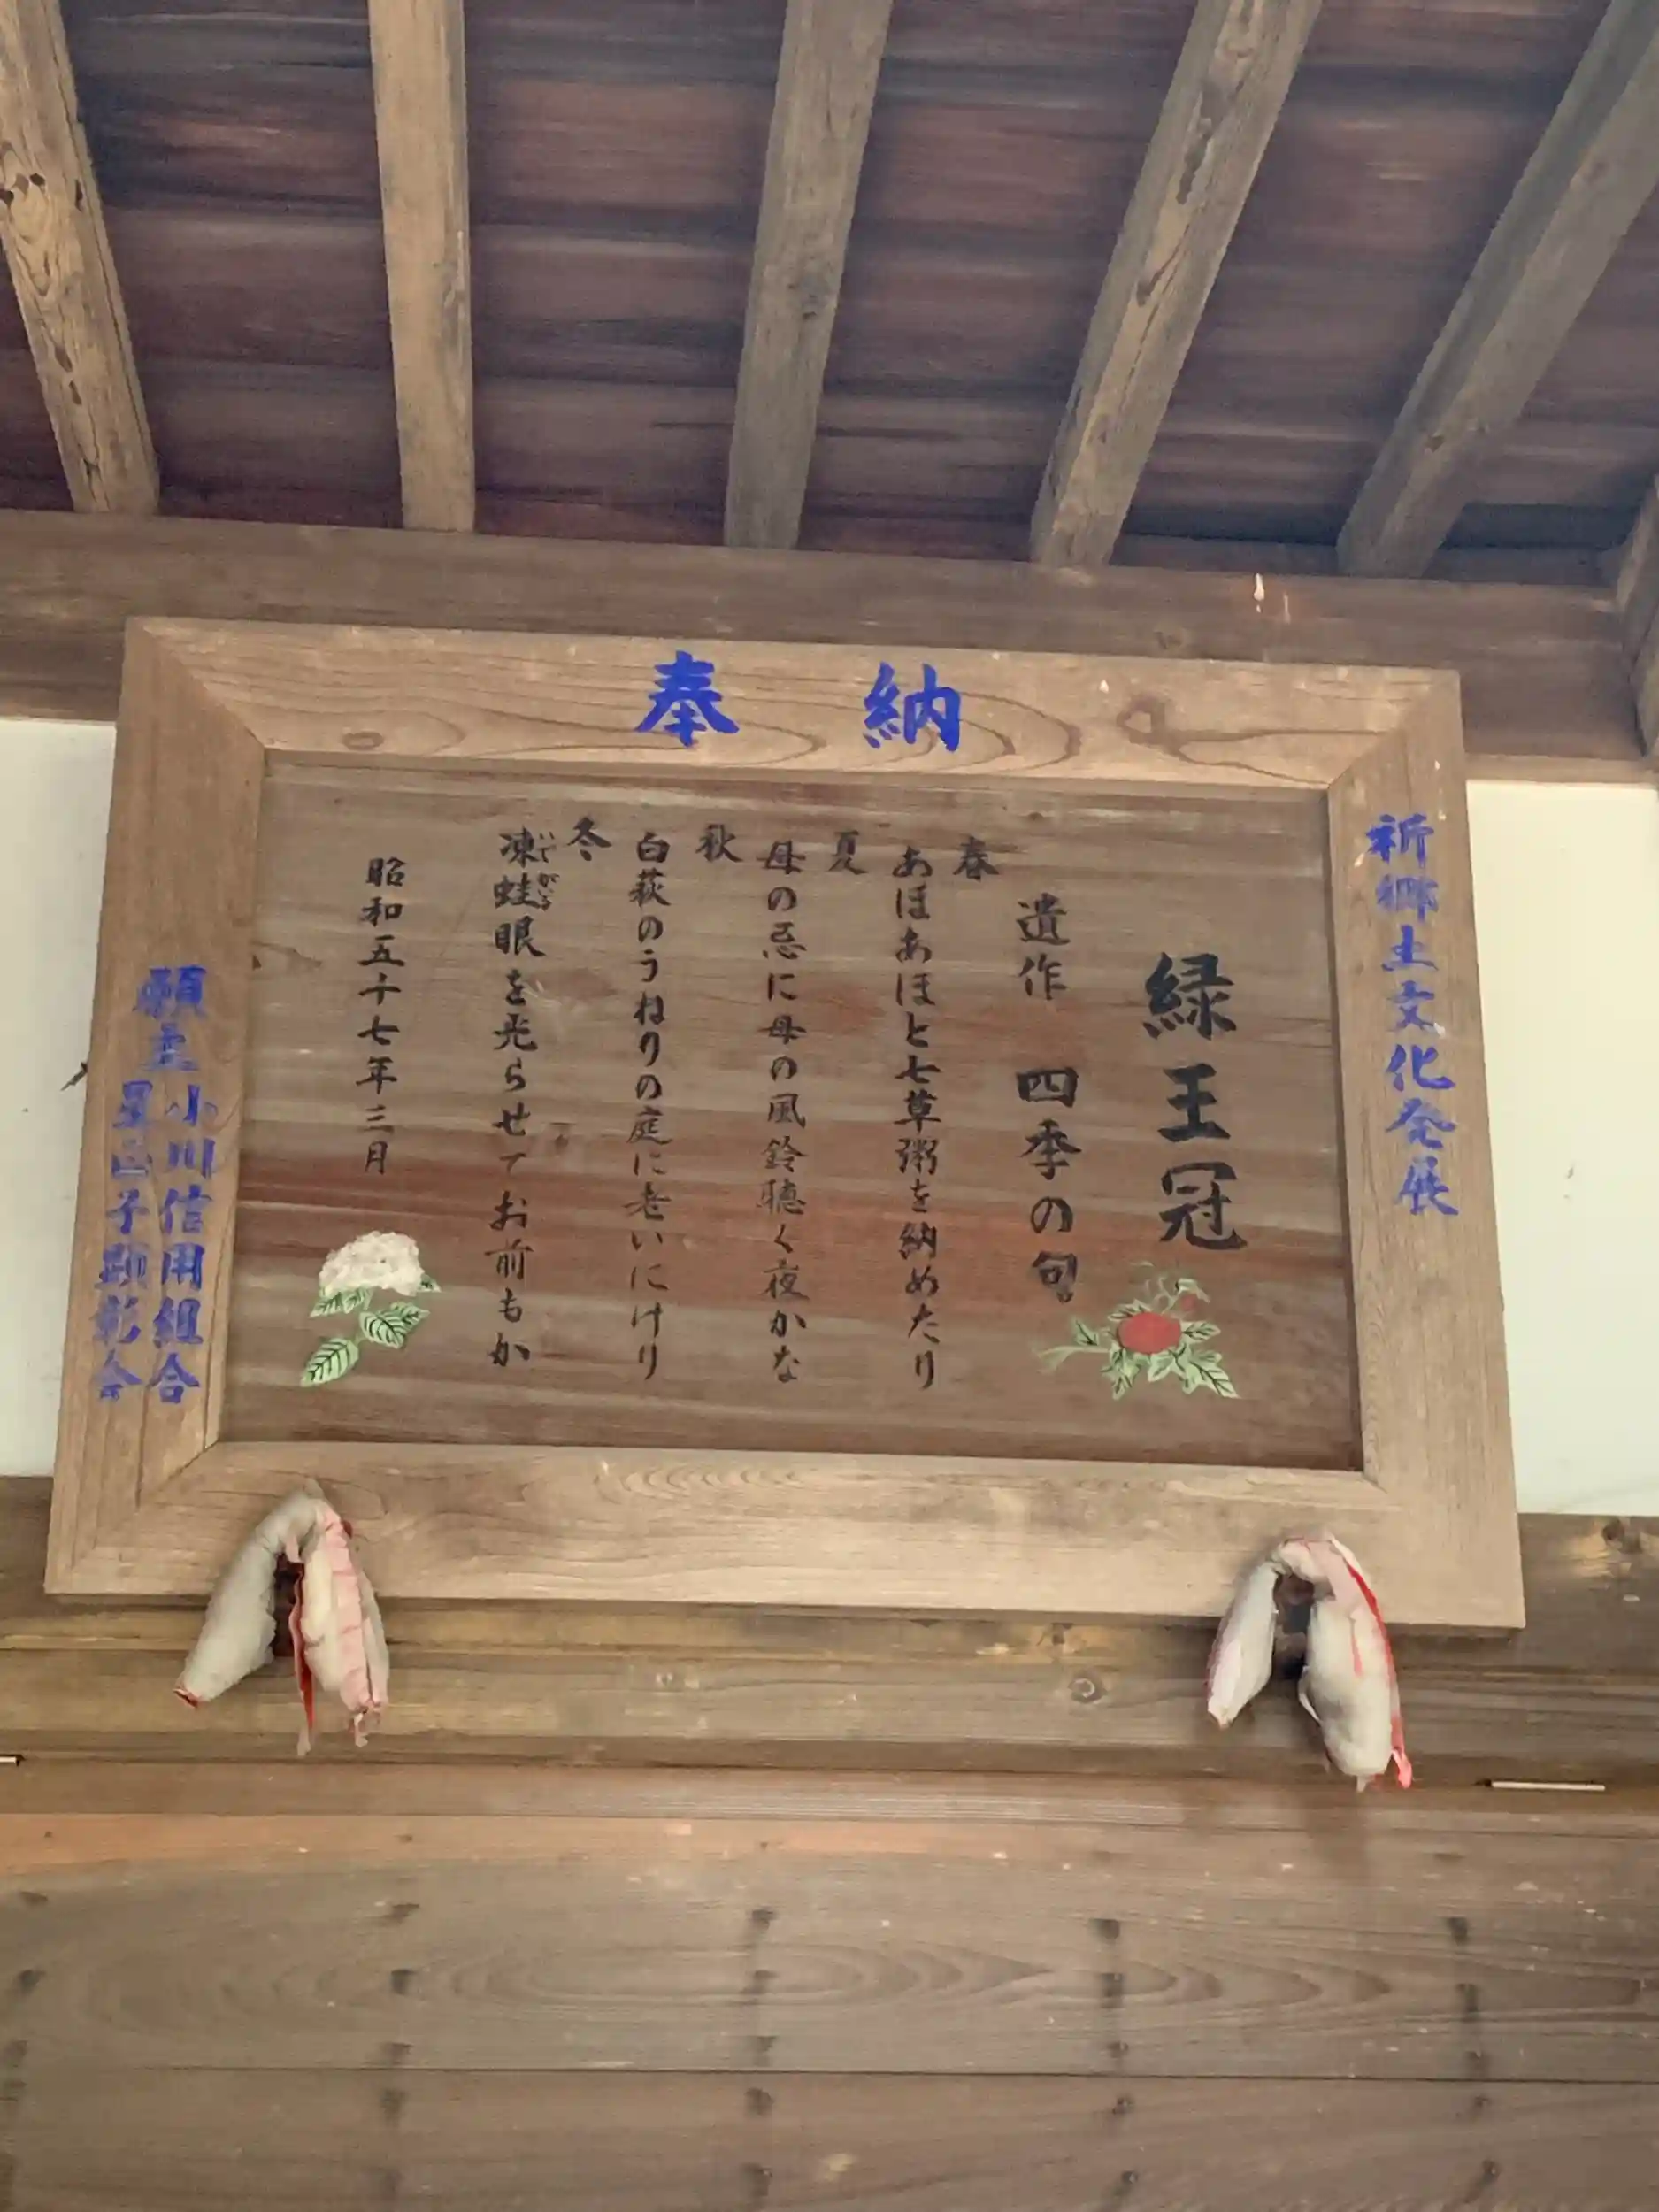 奉納
祈郷土文化発展
緑王冠
遺作 四季の句
春
あほあほと七草粥を納めたり
夏
母の忌に母の風鈴聴く夜かな
秋
白萩のうねりの庭に老いにけり
冬
凍蛙眼を光らせてお前もか
いてがへる
昭和五十七年三月
願主
小川信用組合
子顕彰会